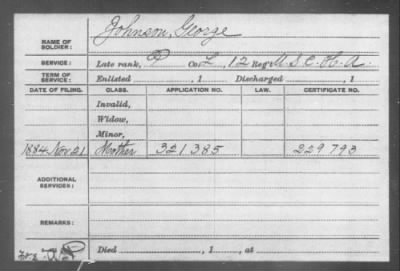 NAME OF SOLDIER: Johnson, George
SERVICE: Late rank, P Co. L, 12 Reg't U.S.C.H.A.
TERM OF SERVICE: Enlisted , 1 Discharged , 1
DATE OF FILING. CLASS. APPLICATION NO. LAW. CERTIFICATE NO.
Invalid,
Widow,
Minor,
1884 Nov 21 Mother 321385 229793
ADDITIONAL SERVICES:
REMARKS:
Died , 1 , at